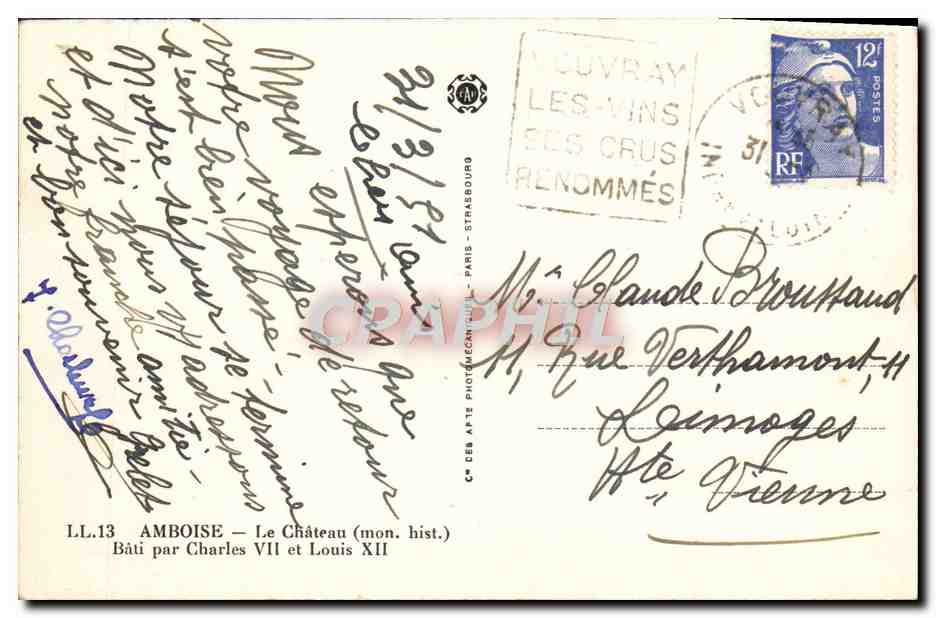 31/3/51
Cher ami
Nous espérons que
votre voyage de retour
s'est bien passé -
Notre séjour se termine
et d'ici nous t'adressons
notre franche amitié -
et bon souvenir
VOUVRAY
LES-VINS
SES CRUS
RENOMMÉS
VOUVRAY
31
12F
POSTES
RF
Cie DES ARTS PHOTOMÉCANIQUES - PARIS - STRASBOURG
CRAPHIL
Mr Claude Broussaud
11, Rue Verthamont, 11
Limoges
Hte Vienne
LL.13 AMBOISE — Le Château (mon. hist.)
Bâti par Charles VII et Louis XII